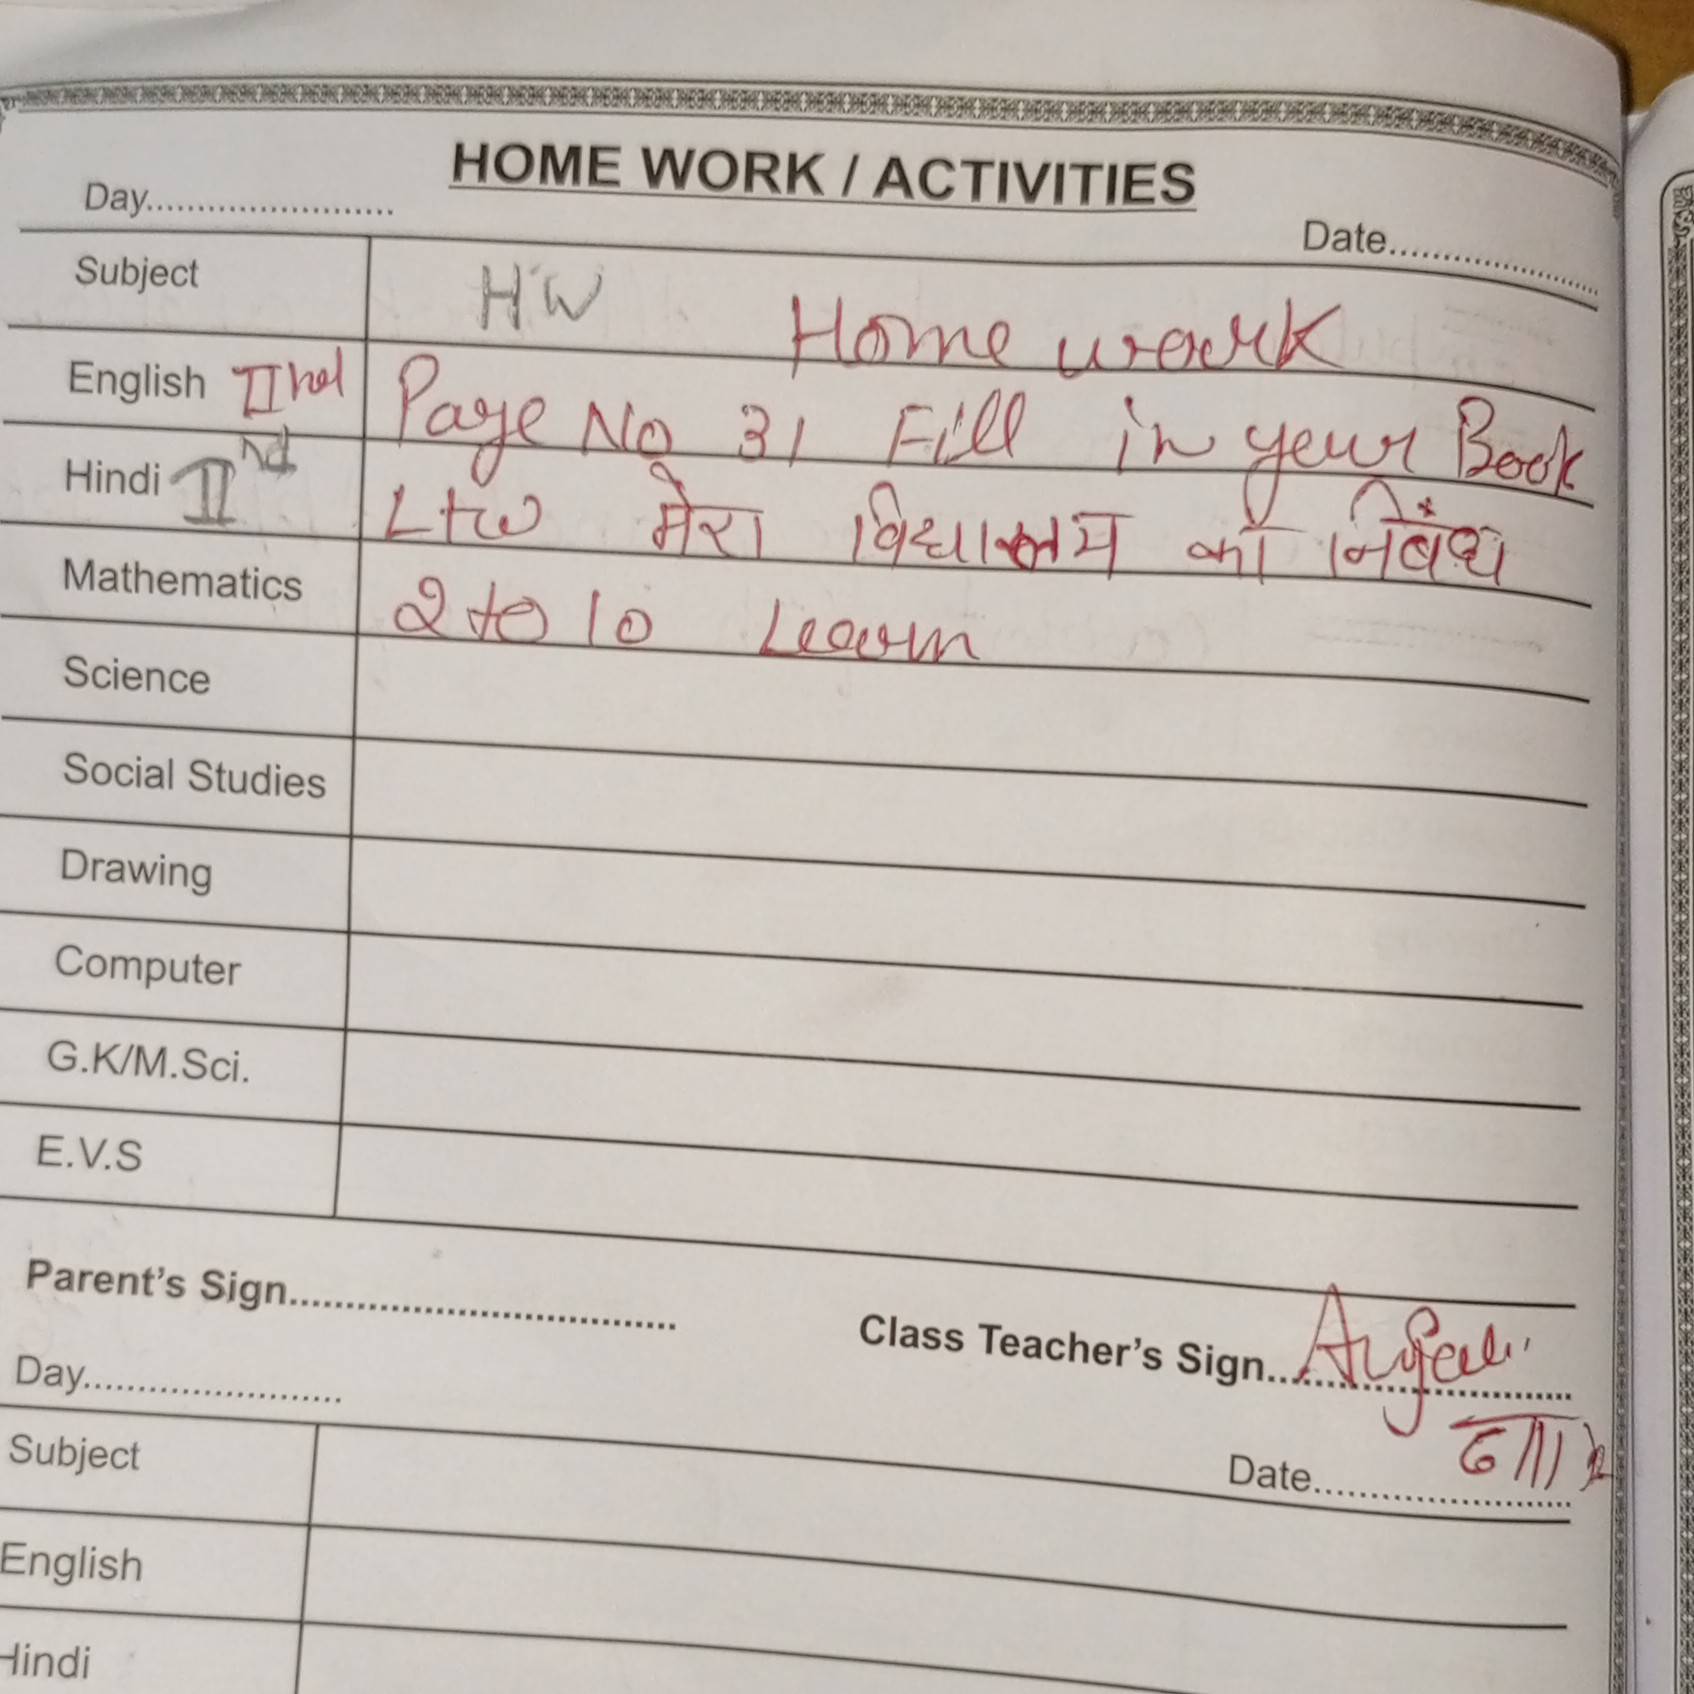 HOME WORK / ACTIVITIES
Day........................
Date........................
Subject HW Home work
English IInd Page No 31 Fill in your Book
Hindi IInd L+w मेरा विद्यालय का निबंध
Mathematics 2 to 10 Learn
Science
Social Studies
Drawing
Computer
G.K/M.Sci.
E.V.S
Parent's Sign....................................
Class Teacher's Sign............................
Day........................
Date........................
Subject
English
Hindi